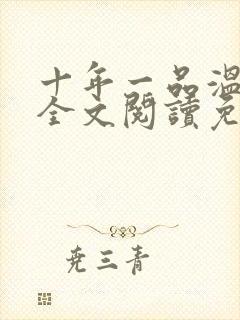 十年一品溫
全文閱讀免
尧三青